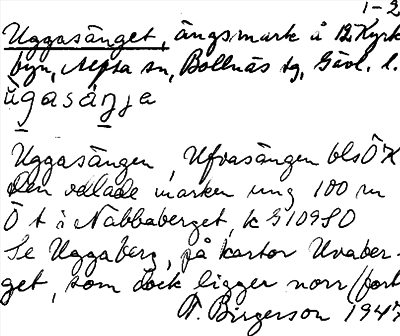 1-2
Uggasänget, ängsmark å 12 Kyrk
byn, Alfta sn, Bollnäs tg, Gävl. l.
ugasäŋja
Uggasängen, Ufvasängen bls Ö K
den odlade marken ung 100 m
Ö t å Nabbaberget, k G109SO
Se Uggaberg, på kartor Uvaber-
get, som dock ligger norr/bort
Birgerson 1947